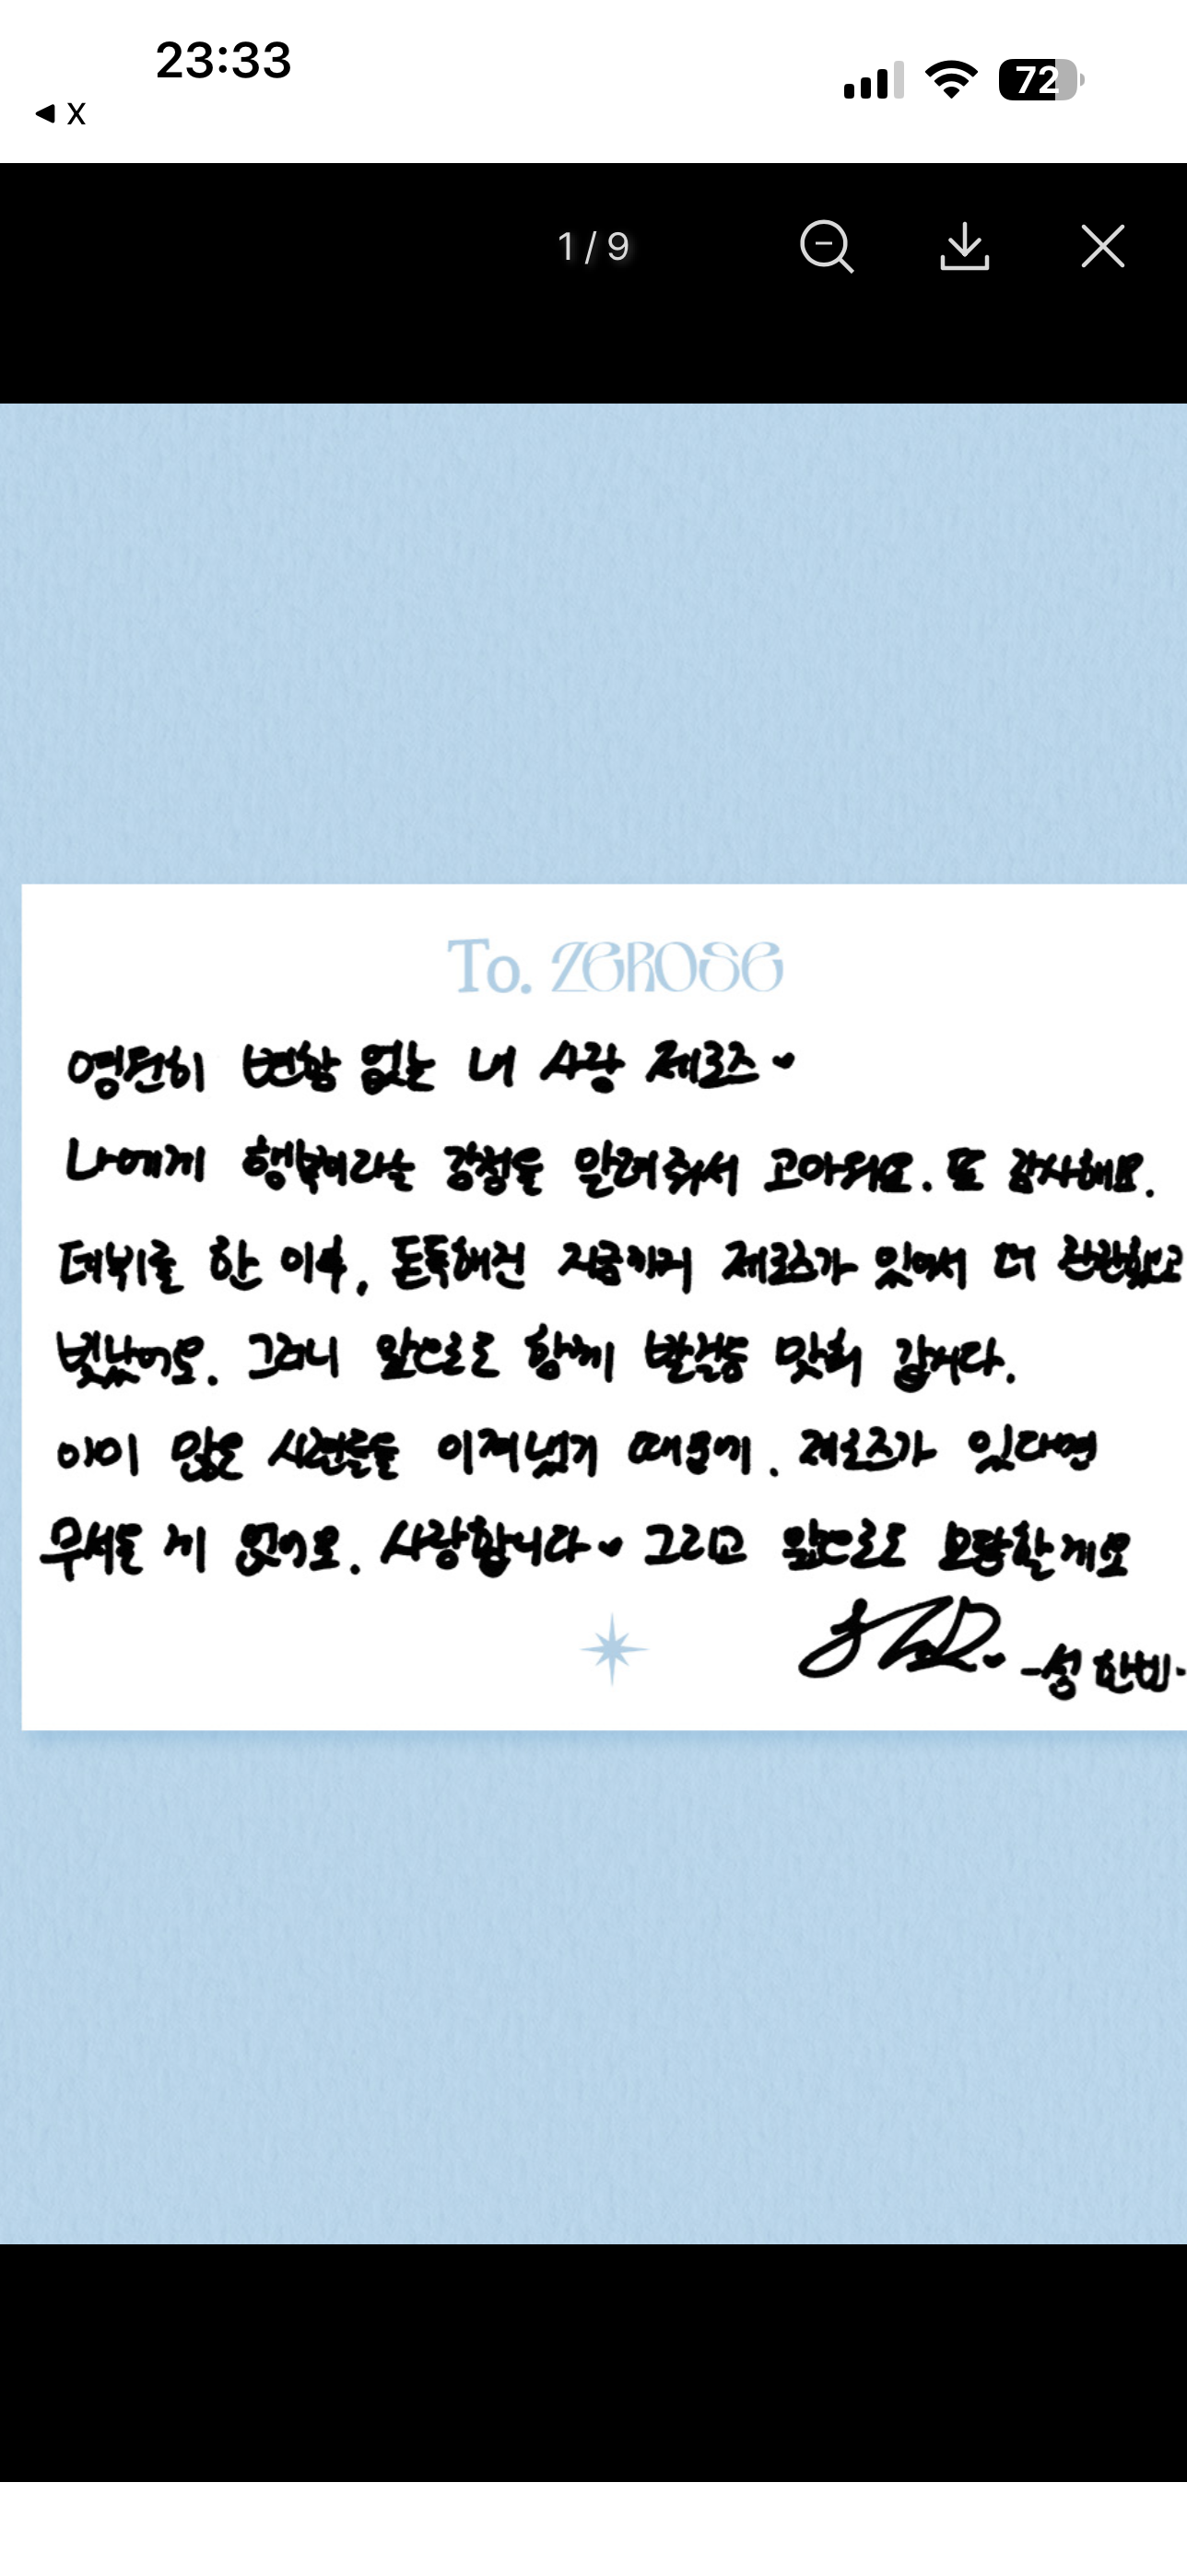 23:33
72
◀ X
1 / 9
To. ZEROSE
영원히 변함 없는 내 사랑 제로즈♥
나에게 행복이라는 감정을 알려줘서 고마워요. 또 감사해요.
데뷔를 한 이후, 돈독해진 지금까지 제로즈가 있어서 더 찬란했고
빛났어요. 그러니 앞으로도 함께 발걸음 맞춰 갑시다.
이미 많은 시련들을 이겨냈기 때문에. 제로즈가 있다면
무서울 게 없어요. 사랑합니다♥ 그리고 앞으로도 보답할게요
-성한빈-